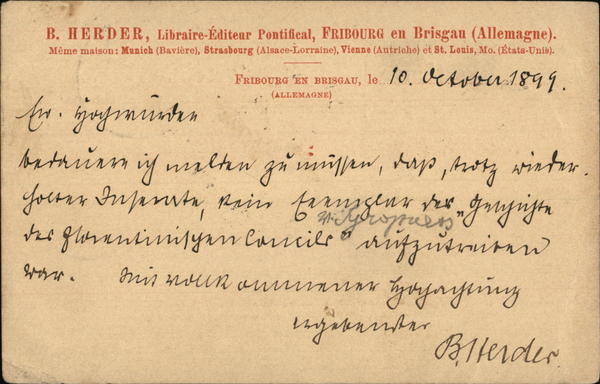 B. HERDER, Libraire-Éditeur Pontifical, FRIBOURG en Brisgau (Allemagne).
Même maison: Munich (Bavière), Strasbourg (Alsace-Lorraine), Vienne (Autriche) et St. Louis, Mo. (États-Unis).
FRIBOURG EN BRISGAU, le 10. October 1899.
(ALLEMAGNE)
Ew. Hochwürden
bedauere ich melden zu müssen, daß, trotz wieder-
holter Inserate, kein Exemplar der "Geschichte
des Florentinischen Concils" aufzutreiben
war. Mit vollkommener Hochachtung
ergebenster
B. Herder.